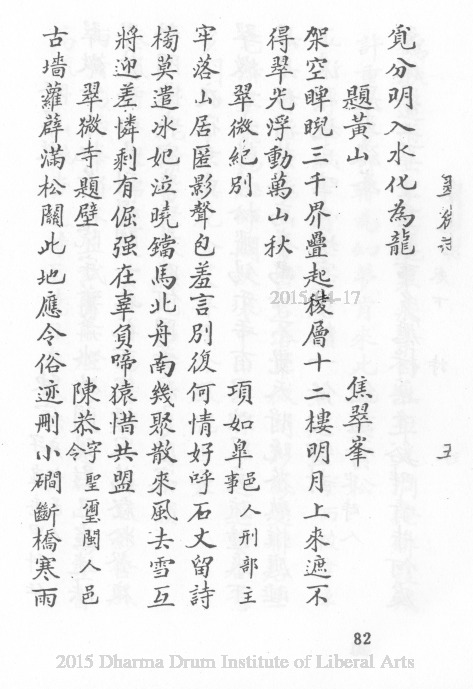 覓分明入水化為龍
題黃山 焦翠峯
架空睥睨三千界疊起稜層十二樓明月上來遮不
得翠光浮動萬山秋
翠微紀別 項如臯 邑人刑部主事
牢落山居匿影聲包羞言別復何情好呼石丈留詩
莫遣冰妃泣曉鐺馬北舟南幾聚散來風去雪互
將迎差憐剩有倔强在辜負啼猿惜共盟
翠微寺題壁 陳恭 字聖璽閩人邑令
古墻蘿薜滿松關此地應令俗迹刪小磵斷橋寒雨
五
82
2015-04-17
2015 Dharma Drum Institute of Liberal Arts